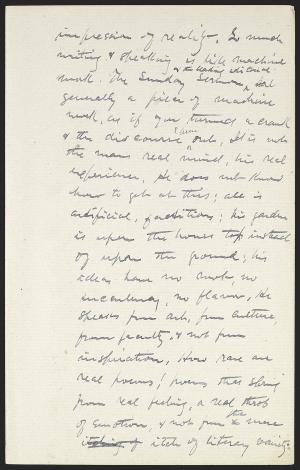 impression of reality. So much
writing & speaking is like machine
& the leading editorial
work. The Sunday Sermon, is
generally a piece of machine
work, as if you turned a crank
& the discourse came out. It is not
the mans real mind, his real
experience. He does not know
how to get at this; all is
artificial, factitious; his garden
is upon the house top instead
of upon the ground; his
ideas have no root, no
succulency, no flavor. He
speaks from art, from culture,
from faculty, & not from
inspiration. How rare are
real poems! poems that spring
from real feeling, a real throb
of emotion, & not from the mere
itching of itch of literary vanity.